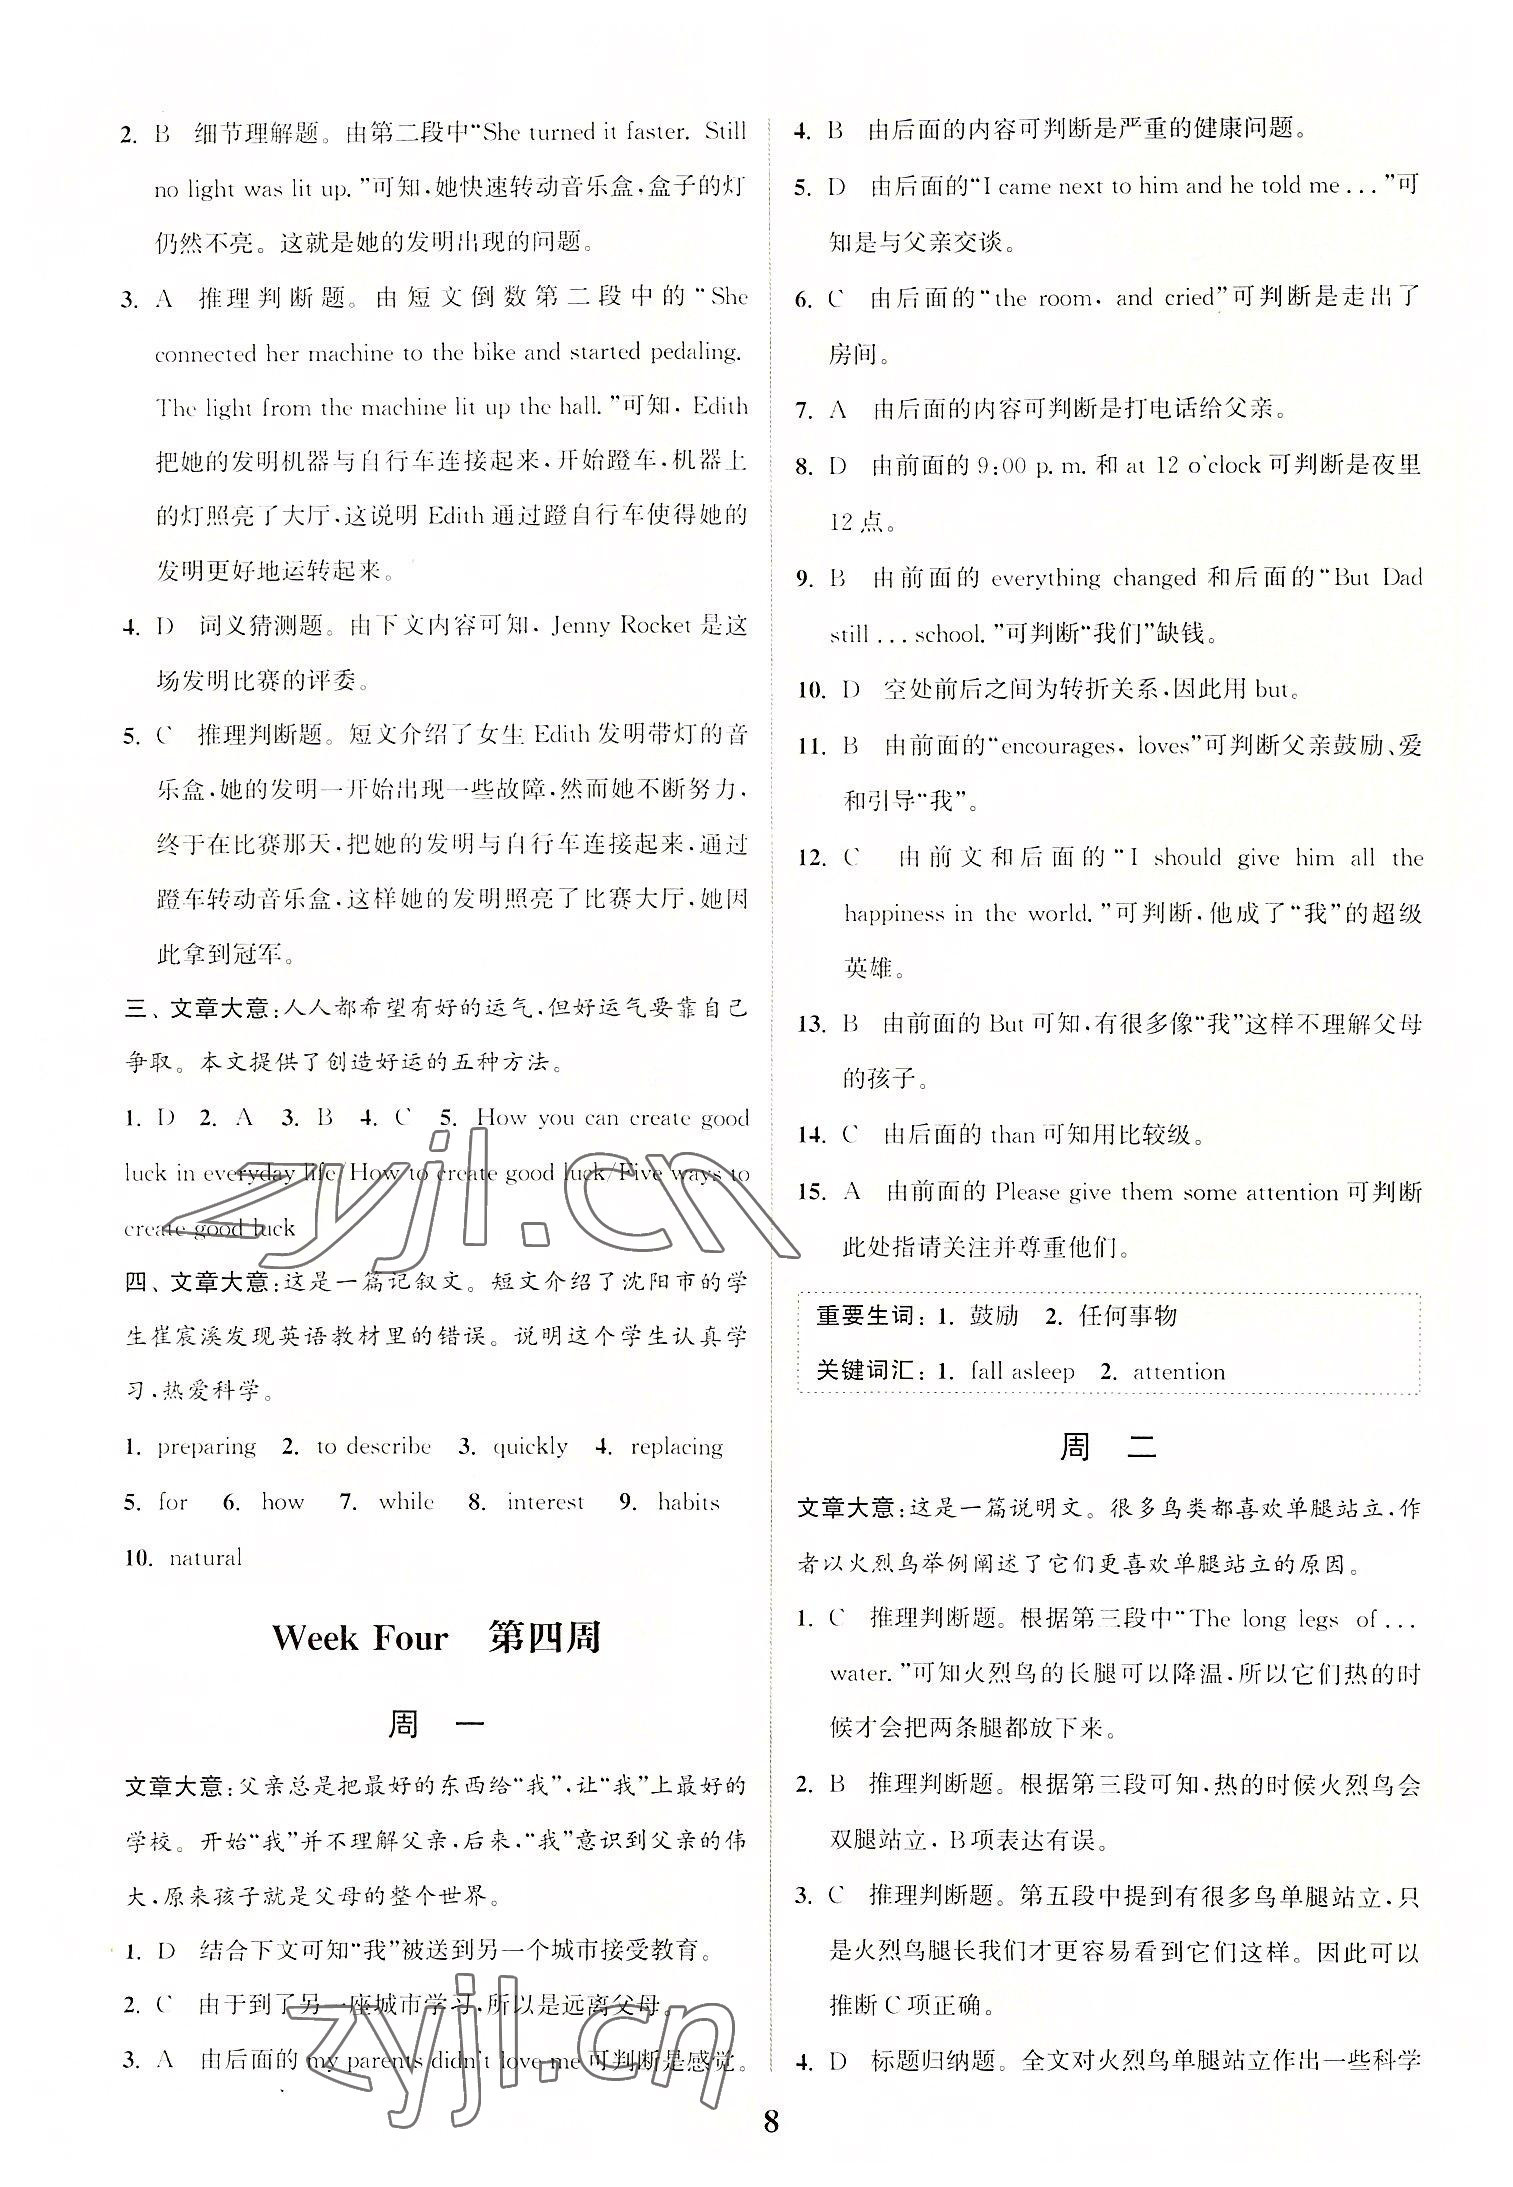 2. B 细节理解题。由第二段中“She turned it faster. Still
no light was lit up.”可知,她快速转动音乐盒,盒子的灯
仍然不亮。这就是她的发明出现的问题。
3. A 推理判断题。由短文倒数第二段中的“She
connected her machine to the bike and started pedaling.
The light from the machine lit up the hall.”可知, Edith
把她的发明机器与自行车连接起来,开始蹬车,机器上
的灯照亮了大厅,这说明 Edith 通过蹬自行车使得她的
发明更好地运转起来。
4. D 词义猜测题。由下文内容可知, Jenny Rocket 是这
场发明比赛的评委。
5. C 推理判断题。短文介绍了女生 Edith 发明带灯的音
乐盒,她的发明一开始出现一些故障,然而她不断努力,
终于在比赛那天,把她的发明与自行车连接起来,通过
蹬车转动音乐盒,这样她的发明照亮了比赛大厅,她因
此拿到冠军。
三、文章大意:人人都希望有好的运气,但好运气要靠自己
争取。本文提供了创造好运的五种方法。
1. D 2. A 3. B 4. C 5. How you can create good
luck in everyday life/How to create good luck/Five ways to
create good luck
四、文章大意:这是一篇记叙文。短文介绍了沈阳市的学
生崔宸溪发现英语教材里的错误。说明这个学生认真学
习,热爱科学。
1. preparing 2. to describe 3. quickly 4. replacing
5. for 6. how 7. while 8. interest 9. habits
10. natural
Week Four 第四周
周 一
文章大意:父亲总是把最好的东西给“我”,让“我”上最好的
学校。开始“我”并不理解父亲,后来,“我”意识到父亲的伟
大,原来孩子就是父母的整个世界。
1. D 结合下文可知“我”被送到另一个城市接受教育。
2. C 由于到了另一座城市学习,所以是远离父母。
3. A 由后面的 my parents didn't love me 可判断是感觉。
4. B 由后面的内容可判断是严重的健康问题。
5. D 由后面的“I came next to him and he told me ...”可
知是与父亲交谈。
6. C 由后面的“the room, and cried”可判断是走出了
房间。
7. A 由后面的内容可判断是打电话给父亲。
8. D 由前面的 9:00 p. m. 和 at 12 o'clock 可判断是夜里
12 点。
9. B 由前面的 everything changed 和后面的“But Dad
still ... school.”可判断“我们”缺钱。
10. D 空处前后之间为转折关系,因此用 but。
11. B 由前面的“encourages, loves”可判断父亲鼓励、爱
和引导“我”。
12. C 由前文和后面的“I should give him all the
happiness in the world.”可判断,他成了“我”的超级
英雄。
13. B 由前面的 But 可知,有很多像“我”这样不理解父母
的孩子。
14. C 由后面的 than 可知用比较级。
15. A 由前面的 Please give them some attention 可判断
此处指请关注并尊重他们。
重要生词: 1. 鼓励 2. 任何事物
关键词汇: 1. fall asleep 2. attention
周 二
文章大意:这是一篇说明文。很多鸟类都喜欢单腿站立,作
者以火烈鸟举例阐述了它们更喜欢单腿站立的原因。
1. C 推理判断题。根据第三段中“The long legs of ...
water.”可知火烈鸟的长腿可以降温,所以它们热的时
候才会把两条腿都放下来。
2. B 推理判断题。根据第三段可知,热的时候火烈鸟会
双腿站立, B 项表达有误。
3. C 推理判断题。第五段中提到有很多鸟单腿站立,只
是火烈鸟腿长我们才更容易看到它们这样。因此可以
推断 C 项正确。
4. D 标题归纳题。全文对火烈鸟单腿站立作出一些科学
8
zyjl.cn
zyjl.cn